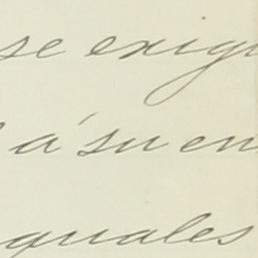 se exigi
á su en
quales